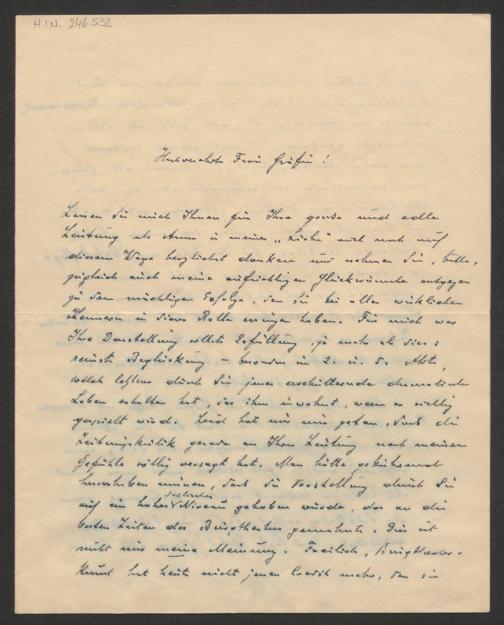 H.I.N. 246532
Hochverehrte Frau Gräfin!
Lassen Sie mich Ihnen für Ihre große und edle
Leistung als Anna in meiner „Liebe" mich noch auf
diesem Wege herzlichst danken und nehmen Sie, bitte,
zugleich auch meine aufrichtigen Glückwünsche entgegen
zu dem mächtigen Erfolge, den Sie bei allen wirklichen
Kennern in dieser Rolle errungen haben. Für mich war
Ihre Darstellung vollste Erfüllung, ja mehr als dies:
reinste Beglückung – besonders im 2. u. 5. Akte,
welch letzterer durch Sie jenes erschütternde dramatische
Leben erhalten hat, das ihm innewohnt, wenn er richtig
gespielt wird. Leid hat mir nur getan, dass die
Zeitungskritik gerade an Ihrer Leistung nach meinem
Gefühle völlig versagt hat. Man hätte gebührend
hervorheben müssen, dass die Vorstellung durch Sie
auf ein hohes seelisches Niveau gehoben wurde, das an die
besten Zeiten des Burgtheaters gemahnte. Dies ist
nicht nur meine Meinung. Freilich, Burgtheater-
Kunst hat heute nicht jenen Credit mehr, den sie